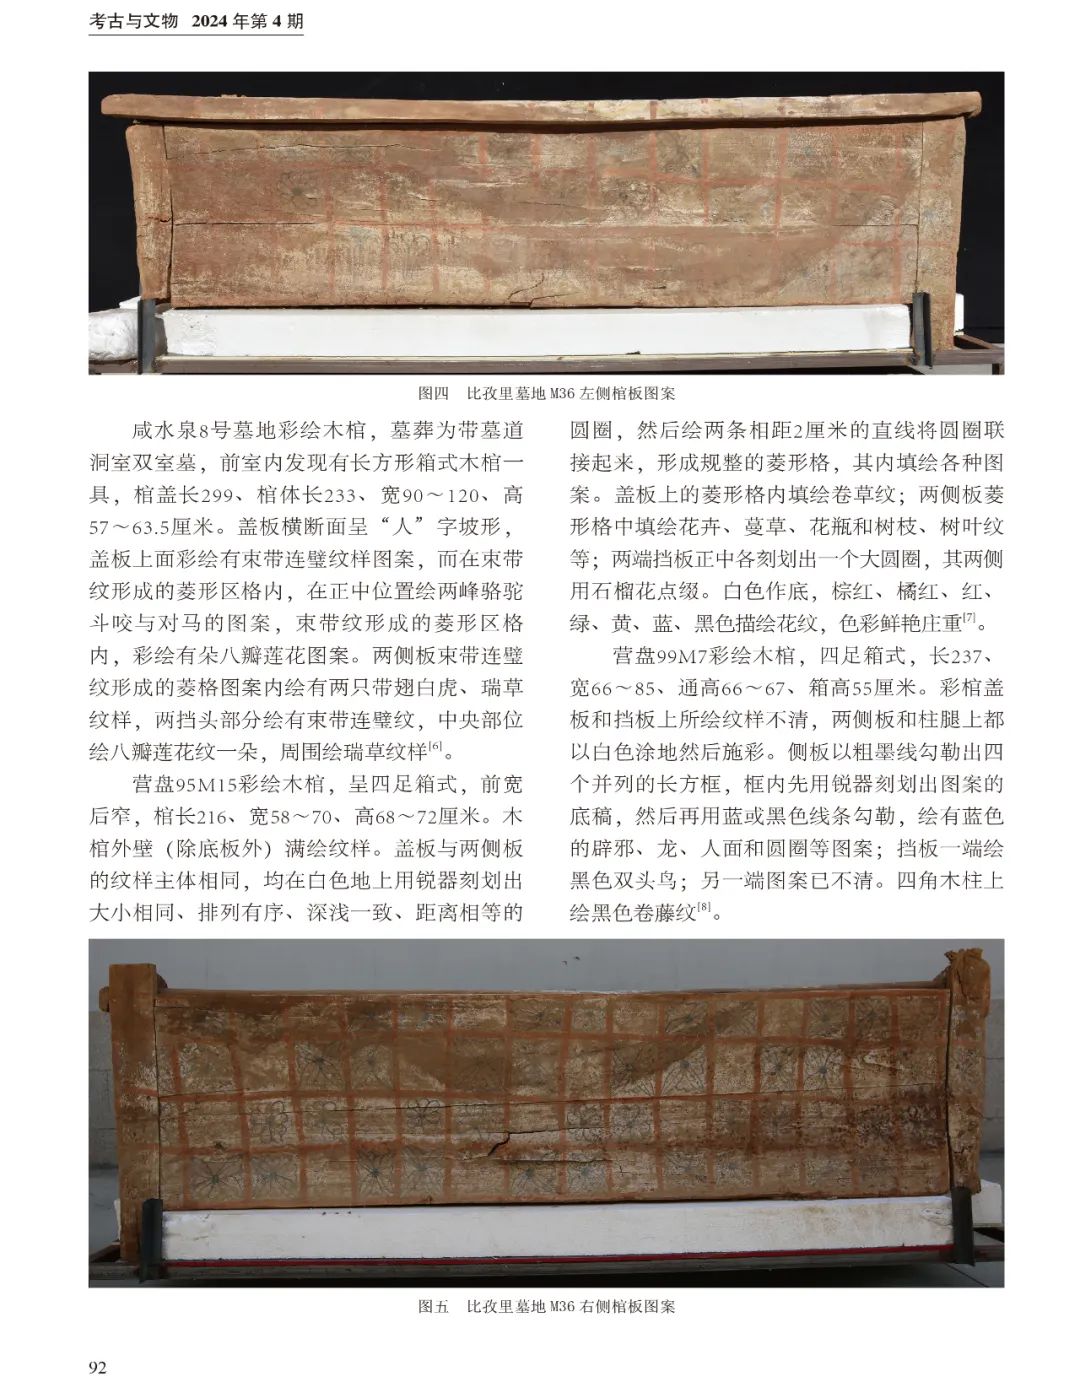 考古与文物 2024 年第 4 期
图四 比孜里墓地 M36 左侧棺板图案
咸水泉8号墓地彩绘木棺，墓葬为带墓道
洞室双室墓，前室内发现有长方形箱式木棺一
具，棺盖长299、棺体长233、宽90～120、高
57～63.5厘米。盖板横断面呈“人”字坡形，
盖板上面彩绘有束带连璧纹样图案，而在束带
纹形成的菱形区格内，在正中位置绘两峰骆驼
斗咬与对马的图案，束带纹形成的菱形区格
内，彩绘有朵八瓣莲花图案。两侧板束带连璧
纹形成的菱格图案内绘有两只带翅白虎、瑞草
纹样，两挡头部分绘有束带连璧纹，中央部位
绘八瓣莲花纹一朵，周围绘瑞草纹样[6]。
营盘95M15彩绘木棺，呈四足箱式，前宽
后窄，棺长216、宽58～70、高68～72厘米。木
棺外壁（除底板外）满绘纹样。盖板与两侧板
的纹样主体相同，均在白色地上用锐器刻划出
大小相同、排列有序、深浅一致、距离相等的
圆圈，然后绘两条相距2厘米的直线将圆圈联
接起来，形成规整的菱形格，其内填绘各种图
案。盖板上的菱形格内填绘卷草纹；两侧板菱
形格中填绘花卉、蔓草、花瓶和树枝、树叶纹
等；两端挡板正中各刻划出一个大圆圈，其两侧
用石榴花点缀。白色作底，棕红、橘红、红、
绿、黄、蓝、黑色描绘花纹，色彩鲜艳庄重[7]。
营盘99M7彩绘木棺，四足箱式，长237、
宽66～85、通高66～67、箱高55厘米。彩棺盖
板和挡板上所绘纹样不清，两侧板和柱腿上都
以白色涂地然后施彩。侧板以粗墨线勾勒出四
个并列的长方框，框内先用锐器刻划出图案的
底稿，然后再用蓝或黑色线条勾勒，绘有蓝色
的辟邪、龙、人面和圆圈等图案；挡板一端绘
黑色双头鸟；另一端图案已不清。四角木柱上
绘黑色卷藤纹[8]。
图五 比孜里墓地 M36 右侧棺板图案
92